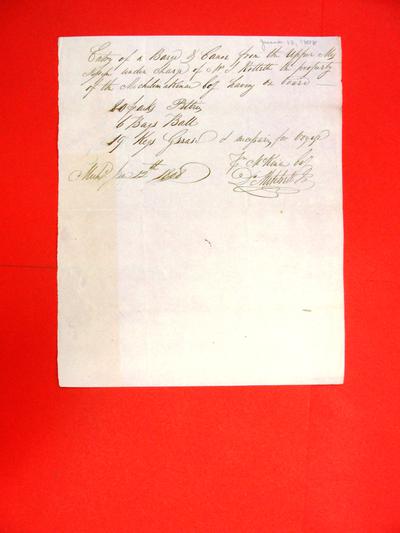 June 12, 1808
Entry of a Barge & Canoe from the Upper Mis
sippi under charge of Mr J Rolette the property
of the Michilimackinac Co. having on board
Packs Peltry
6 Bags Ball
19 Kegs Grease & necessary for Voyage
Mack June 12th 1808